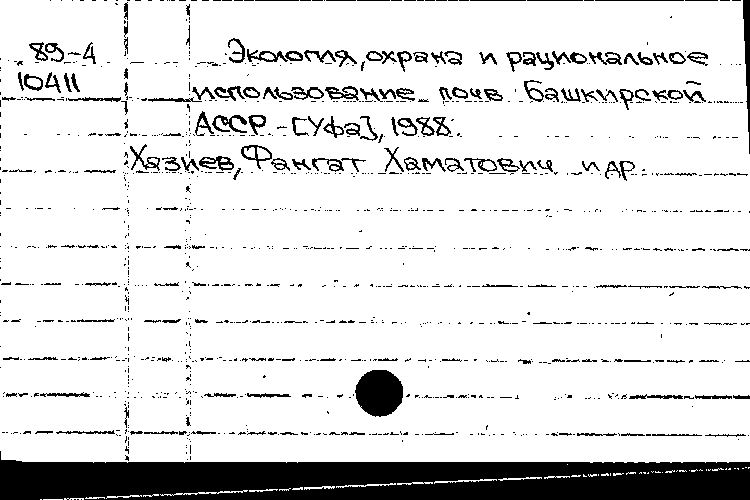 89-4 Экология, охрана и рациональное
10411 использование почв Башкирской
АССР.-[Уфа], 1988.
Хазиев, Фангат Хаматович и др.